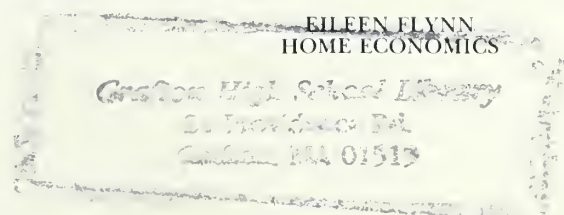 EILEEN FLYNN
HOME ECONOMICS
Grafton High School Library
Providence Rd.
Grafton, MA 01519